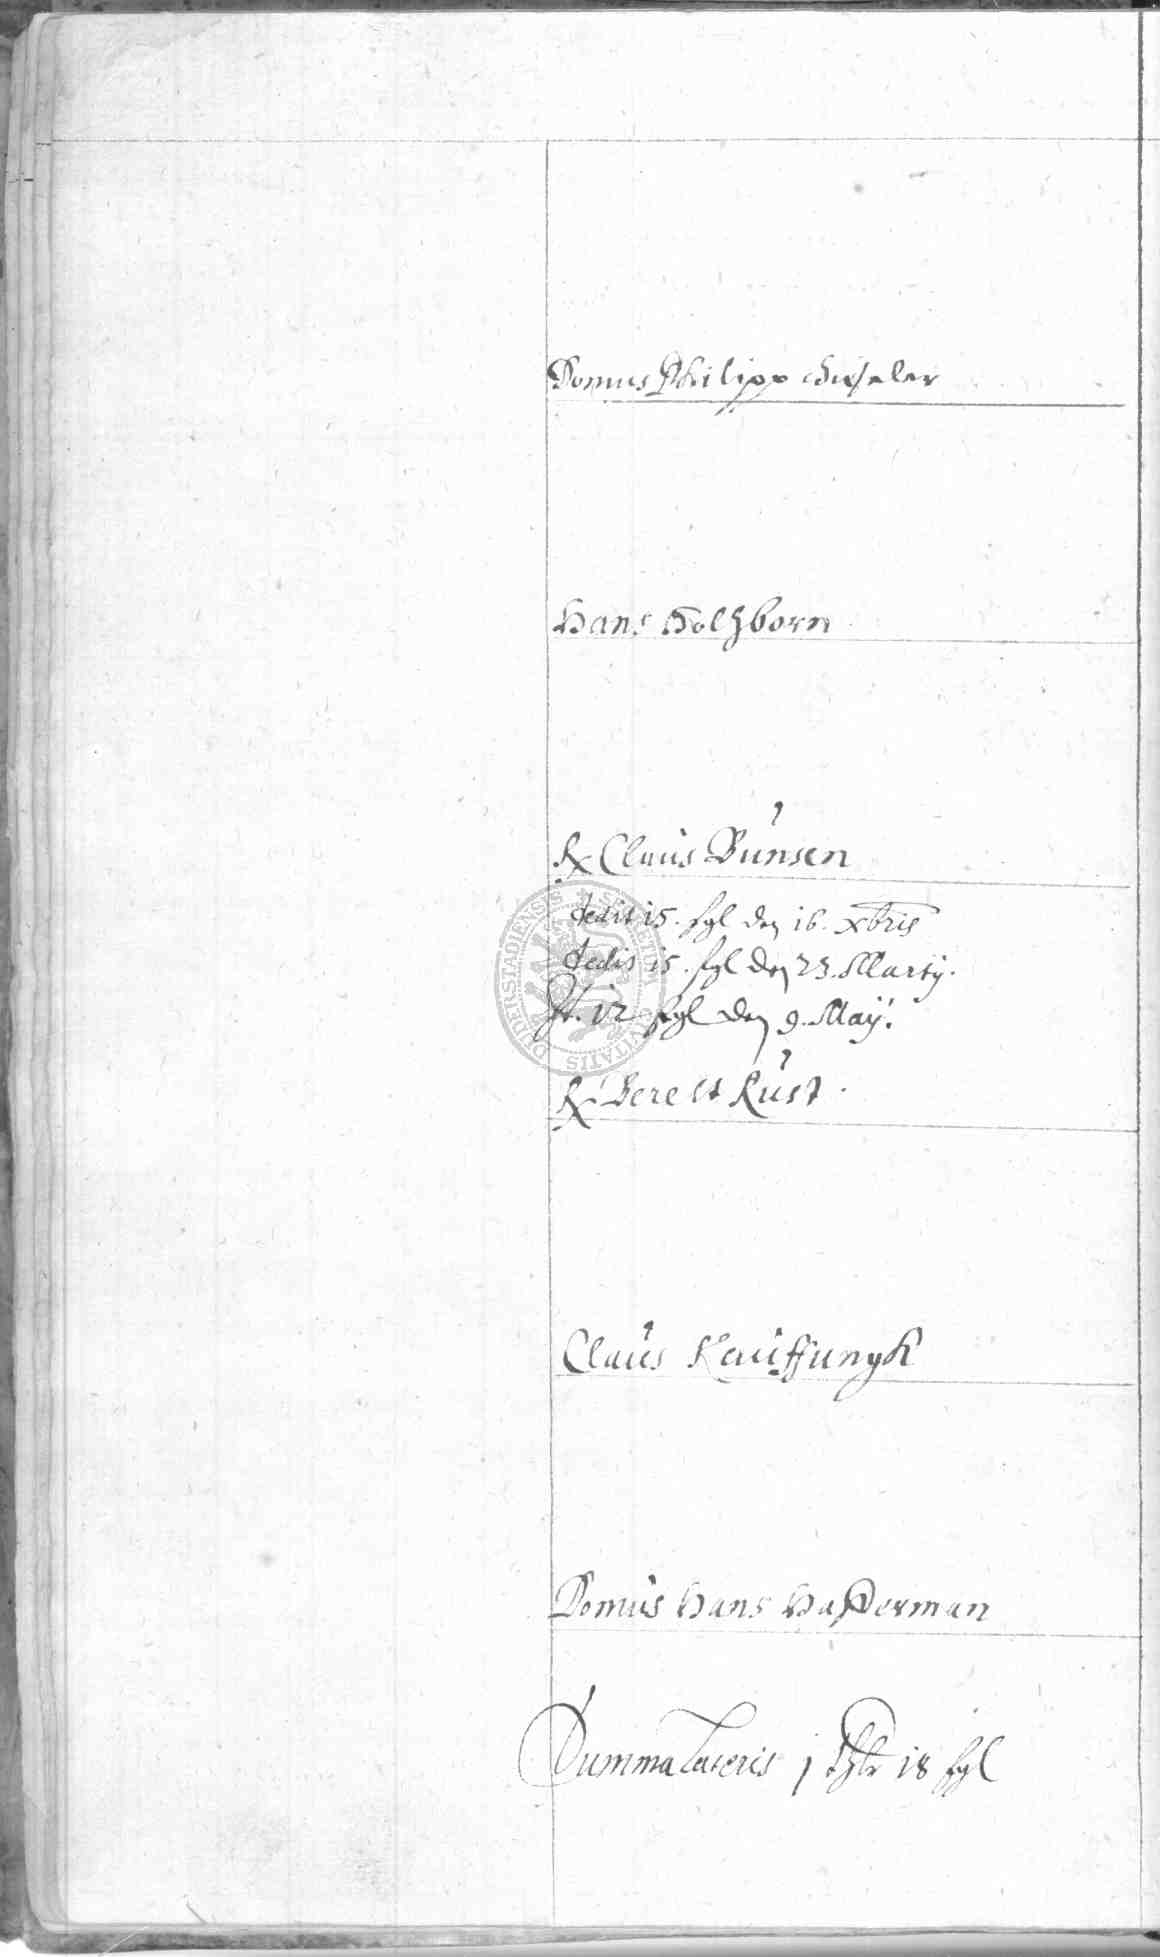 Domus Philipp Giseler
Hans Holzborn
Rx Claus Bunsen
dedit 15. sgl den 16. xbris
dedit 15. sgl den 23. Martij.
It. 12 sgl den 9. Maÿ.
Rx Berelt Rust.
Claus Kauffungk
Domus Hans Hasderman
Summa Lateris 1 thlr 18 sgl
SECRETUM CIVITATIS DUDERSTADIENSIS